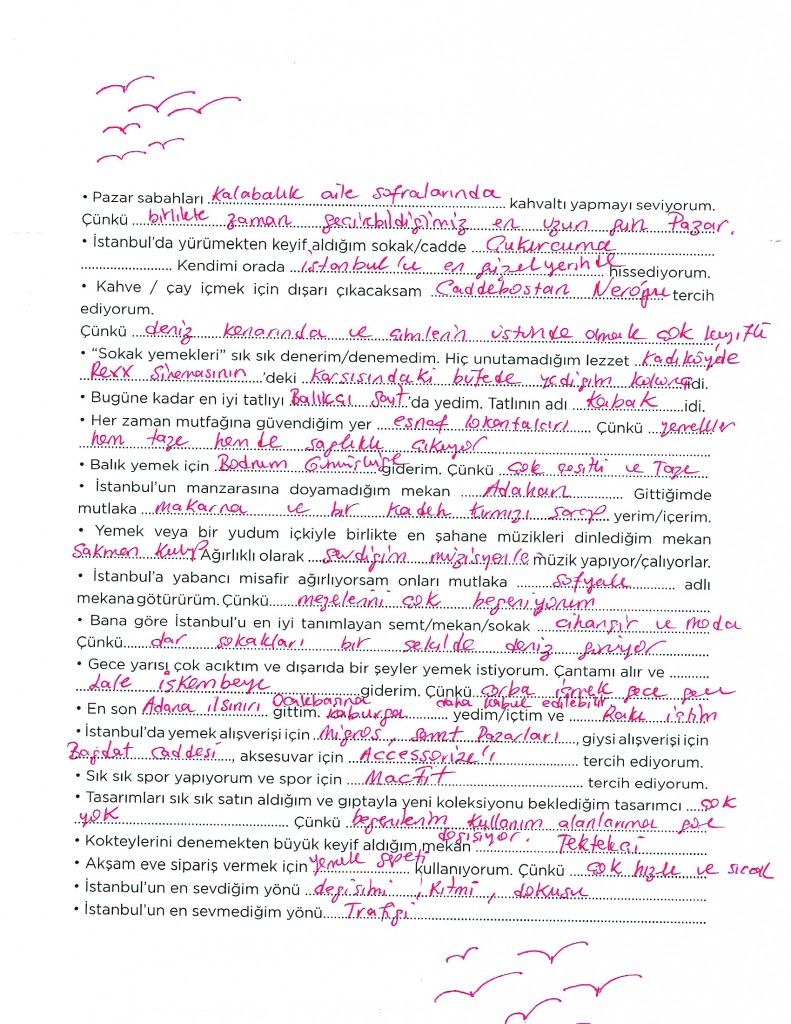 • Pazar sabahları Kalabalık aile sofralarında kahvaltı yapmayı seviyorum.
Çünkü birlikte zaman geçirebildiğimiz en uzun gün Pazar.
• İstanbul'da yürümekten keyif aldığım sokak/cadde Çukurcuma
Kendimi orada istanbul'un en güzel yerinde hissediyorum.
• Kahve / çay içmek için dışarı çıkacaksam Caddebostan Nero'yu tercih
ediyorum.
Çünkü deniz kenarında ve çimlerin üstünde olmak çok keyifli
• "Sokak yemekleri" sık sık denerim/denemedim. Hiç unutamadığım lezzet Kadıköyde
Rexx Sinemasının 'deki karşısındaki büfede yediğim kokoreç idi.
• Bugüne kadar en iyi tatlıyı Balıkçı Sait 'da yedim. Tatlının adı Kabak idi.
• Her zaman mutfağına güvendiğim yer esnaf lokantaları Çünkü yemekler
hem taze hem de sağlıklı çıkıyor
• Balık yemek için Bodrum Gümüşlüğe giderim. Çünkü çok çeşitli ve Taze
• İstanbul'un manzarasına doyamadığım mekan Adahan Gittiğimde
mutlaka makarna ve bir kadeh kırmızı şarap yerim/içerim.
• Yemek veya bir yudum içkiyle birlikte en şahane müzikleri dinlediğim mekan
Sakman Kulüp Ağırlıklı olarak sevdiğim müzisyenler müzik yapıyor/çalıyorlar.
• İstanbul'a yabancı misafir ağırlıyorsam onları mutlaka sofyalı adlı
mekana götürürüm. Çünkü mezelerini çok beğeniyorum
• Bana göre İstanbul'u en iyi tanımlayan semt/mekan/sokak cihangir ve moda
Çünkü dar sokakları bir şekilde deniz görüyor
• Gece yarısı çok acıktım ve dışarıda bir şeyler yemek istiyorum. Çantamı alır ve
Lale işkembeye giderim. Çünkü çorba içmek gece gece
daha kabul edilebilir
• En son Adana ilsınırı Ocakbaşına gittim. kaburga yedim/içtim ve Rakı içtim
• İstanbul'da yemek alışverişi için Migros, semt Pazarları, giysi alışverişi için
Bağdat caddesi, aksesuvar için Accessorize'ı tercih ediyorum.
• Sık sık spor yapıyorum ve spor için MacFit tercih ediyorum.
• Tasarımları sık sık satın aldığım ve gıptayla yeni koleksiyonu beklediğim tasarımcı çok
yok Çünkü beğenilerim kullanım alanlarıma göre
değişiyor.
• Kokteylerini denemekten büyük keyif aldığım mekan Tektekçi
• Akşam eve sipariş vermek için yemek sepeti kullanıyorum. Çünkü çok hızlı ve sıcak
• İstanbul'un en sevdiğim yönü değişimi, Ritmi, dokusu
• İstanbul'un en sevmediğim yönü Trafiği